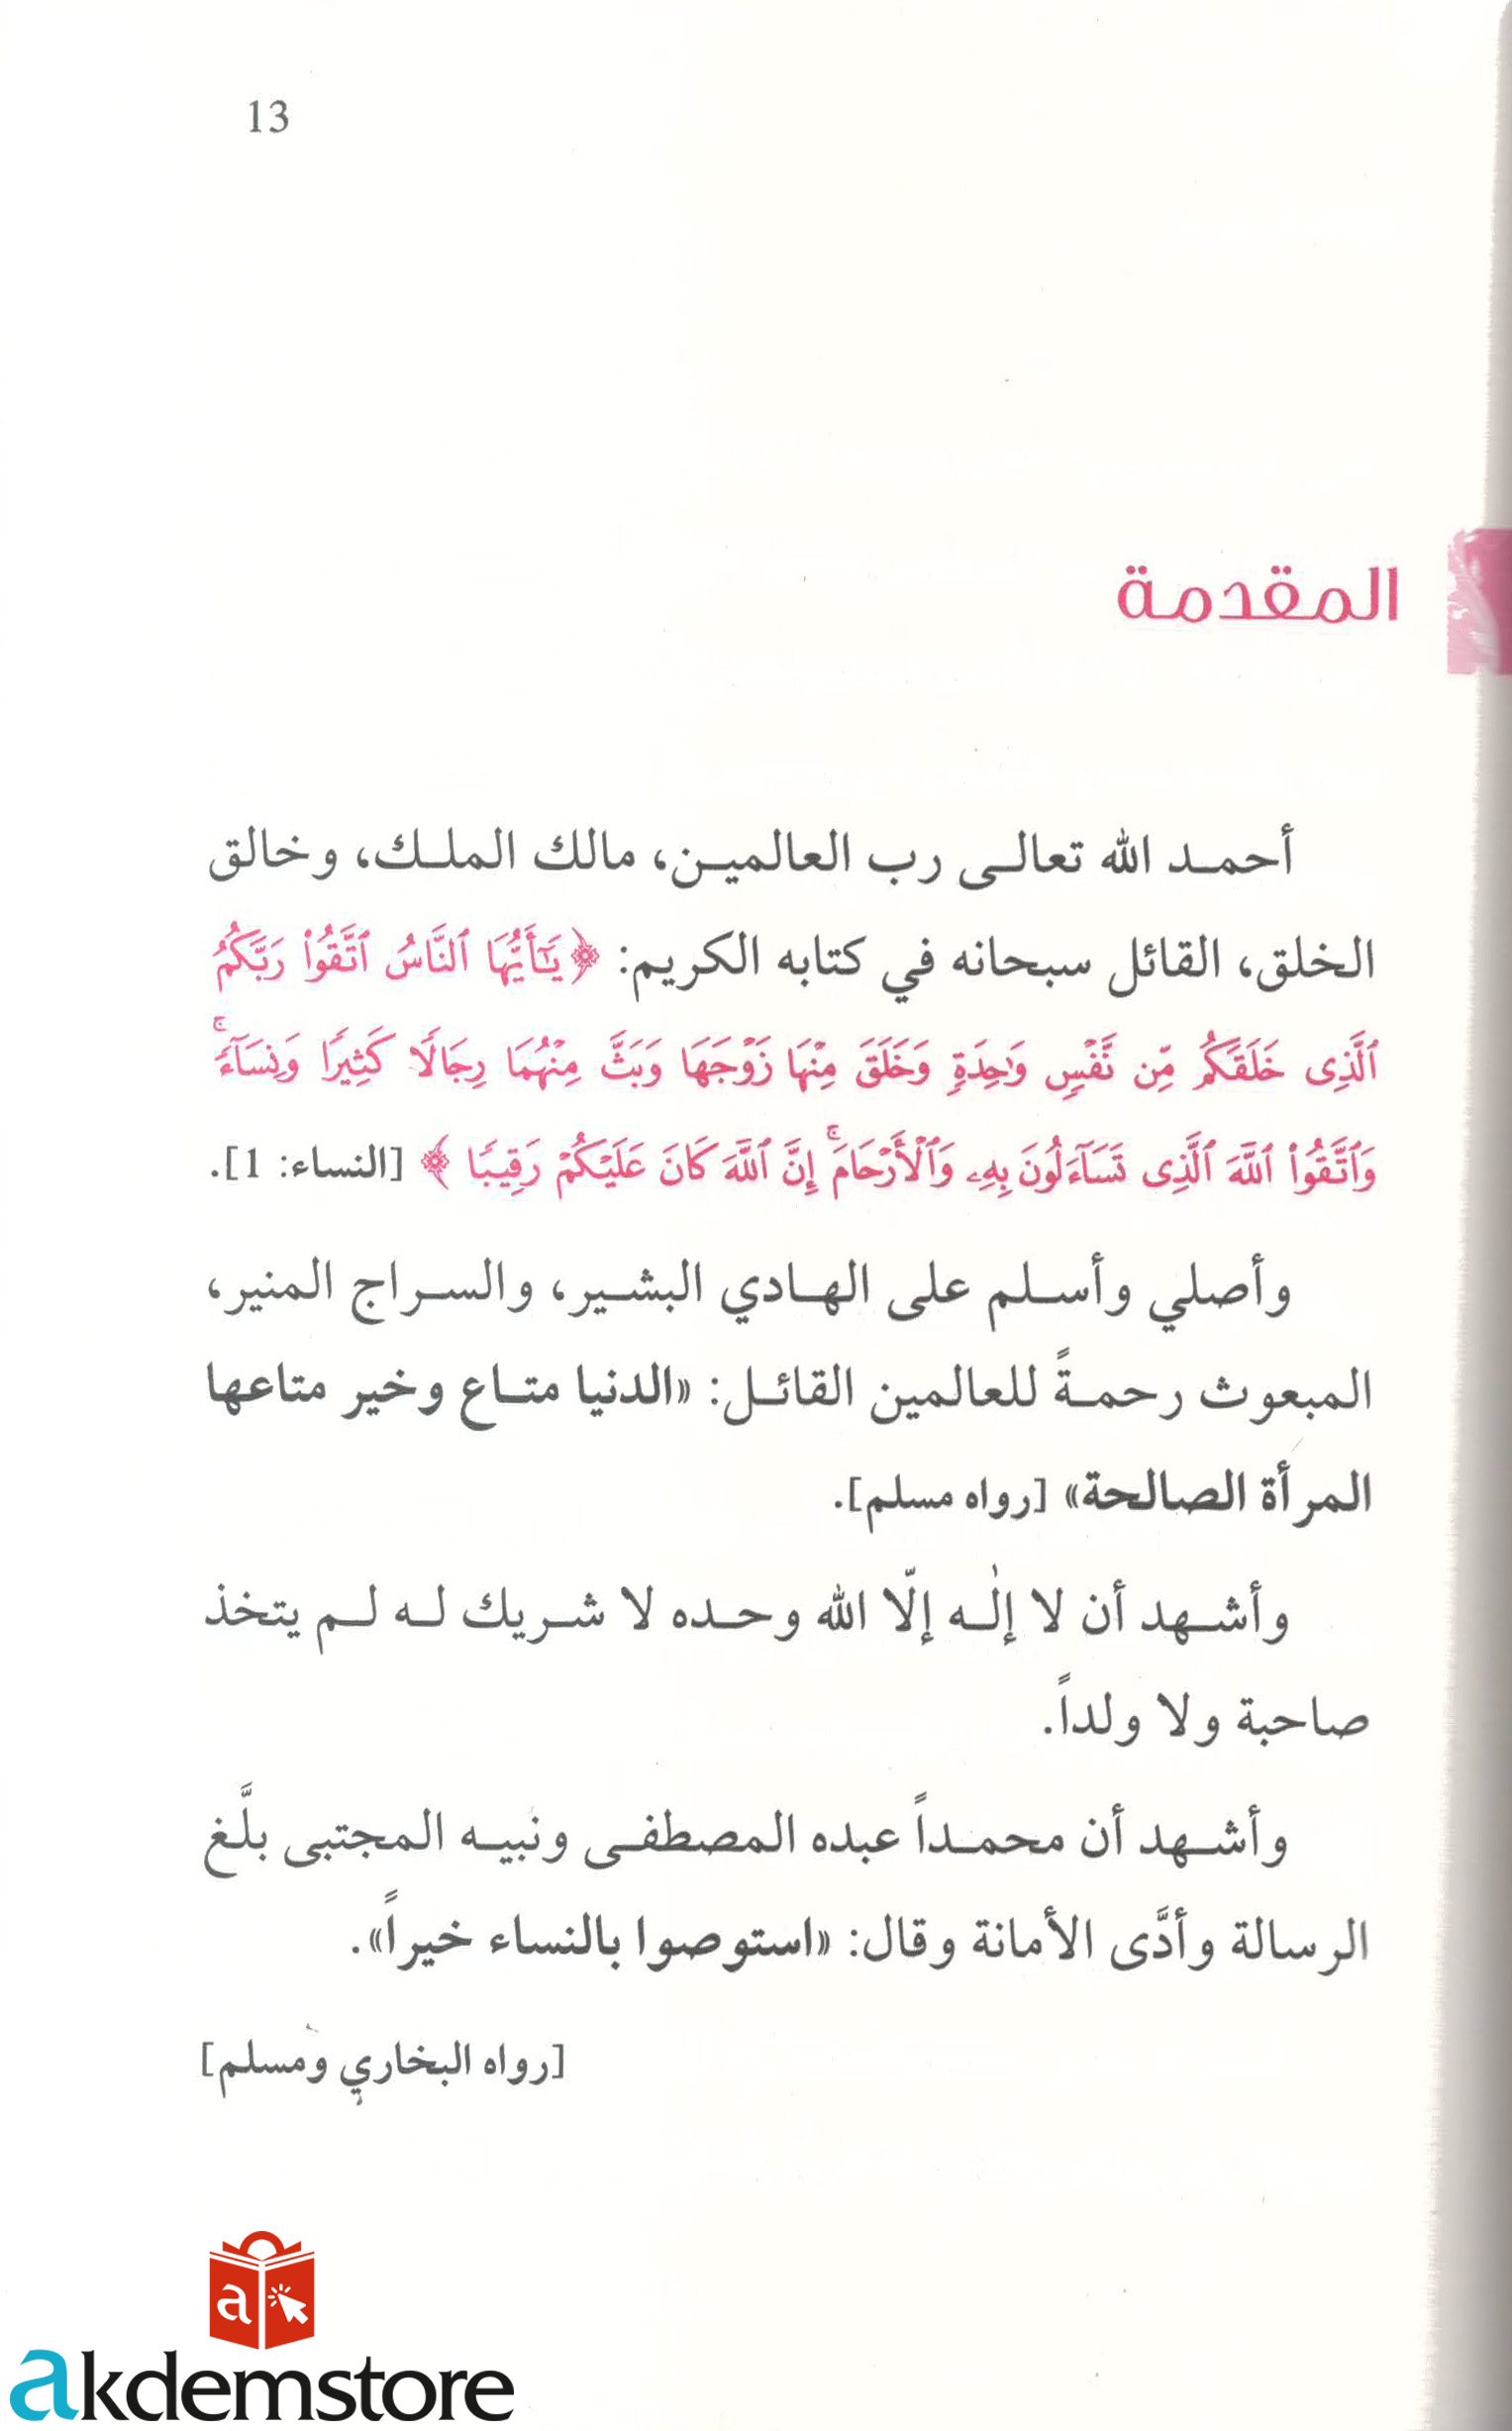 13
المقدمة
أحمد الله تعالى رب العالمين، مالك الملك، وخالق
الخلق، القائل سبحانه في كتابه الكريم: ﴿يَٰٓأَيُّهَا ٱلنَّاسُ ٱتَّقُوا۟ رَبَّكُمُ
ٱلَّذِى خَلَقَكُم مِّن نَّفْسٍ وَٰحِدَةٍ وَخَلَقَ مِنْهَا زَوْجَهَا وَبَثَّ مِنْهُمَا رِجَالًا كَثِيرًا وَنِسَآءً ۚ
وَٱتَّقُوا۟ ٱللَّهَ ٱلَّذِى تَسَآءَلُونَ بِهِۦ وَٱلْأَرْحَامَ ۚ إِنَّ ٱللَّهَ كَانَ عَلَيْكُمْ رَقِيبًا﴾ [النساء: 1].
وأصلي وأسلم على الهادي البشير، والسراج المنير،
المبعوث رحمةً للعالمين القائل: «الدنيا متاع وخير متاعها
المرأة الصالحة» [رواه مسلم].
وأشهد أن لا إلٰه إلّا الله وحده لا شريك له لم يتخذ
صاحبة ولا ولداً.
وأشهد أن محمداً عبده المصطفى ونبيه المجتبى بلَّغ
الرسالة وأدَّى الأمانة وقال: «استوصوا بالنساء خيراً».
[رواه البخاري ومسلم]
a
akdemstore